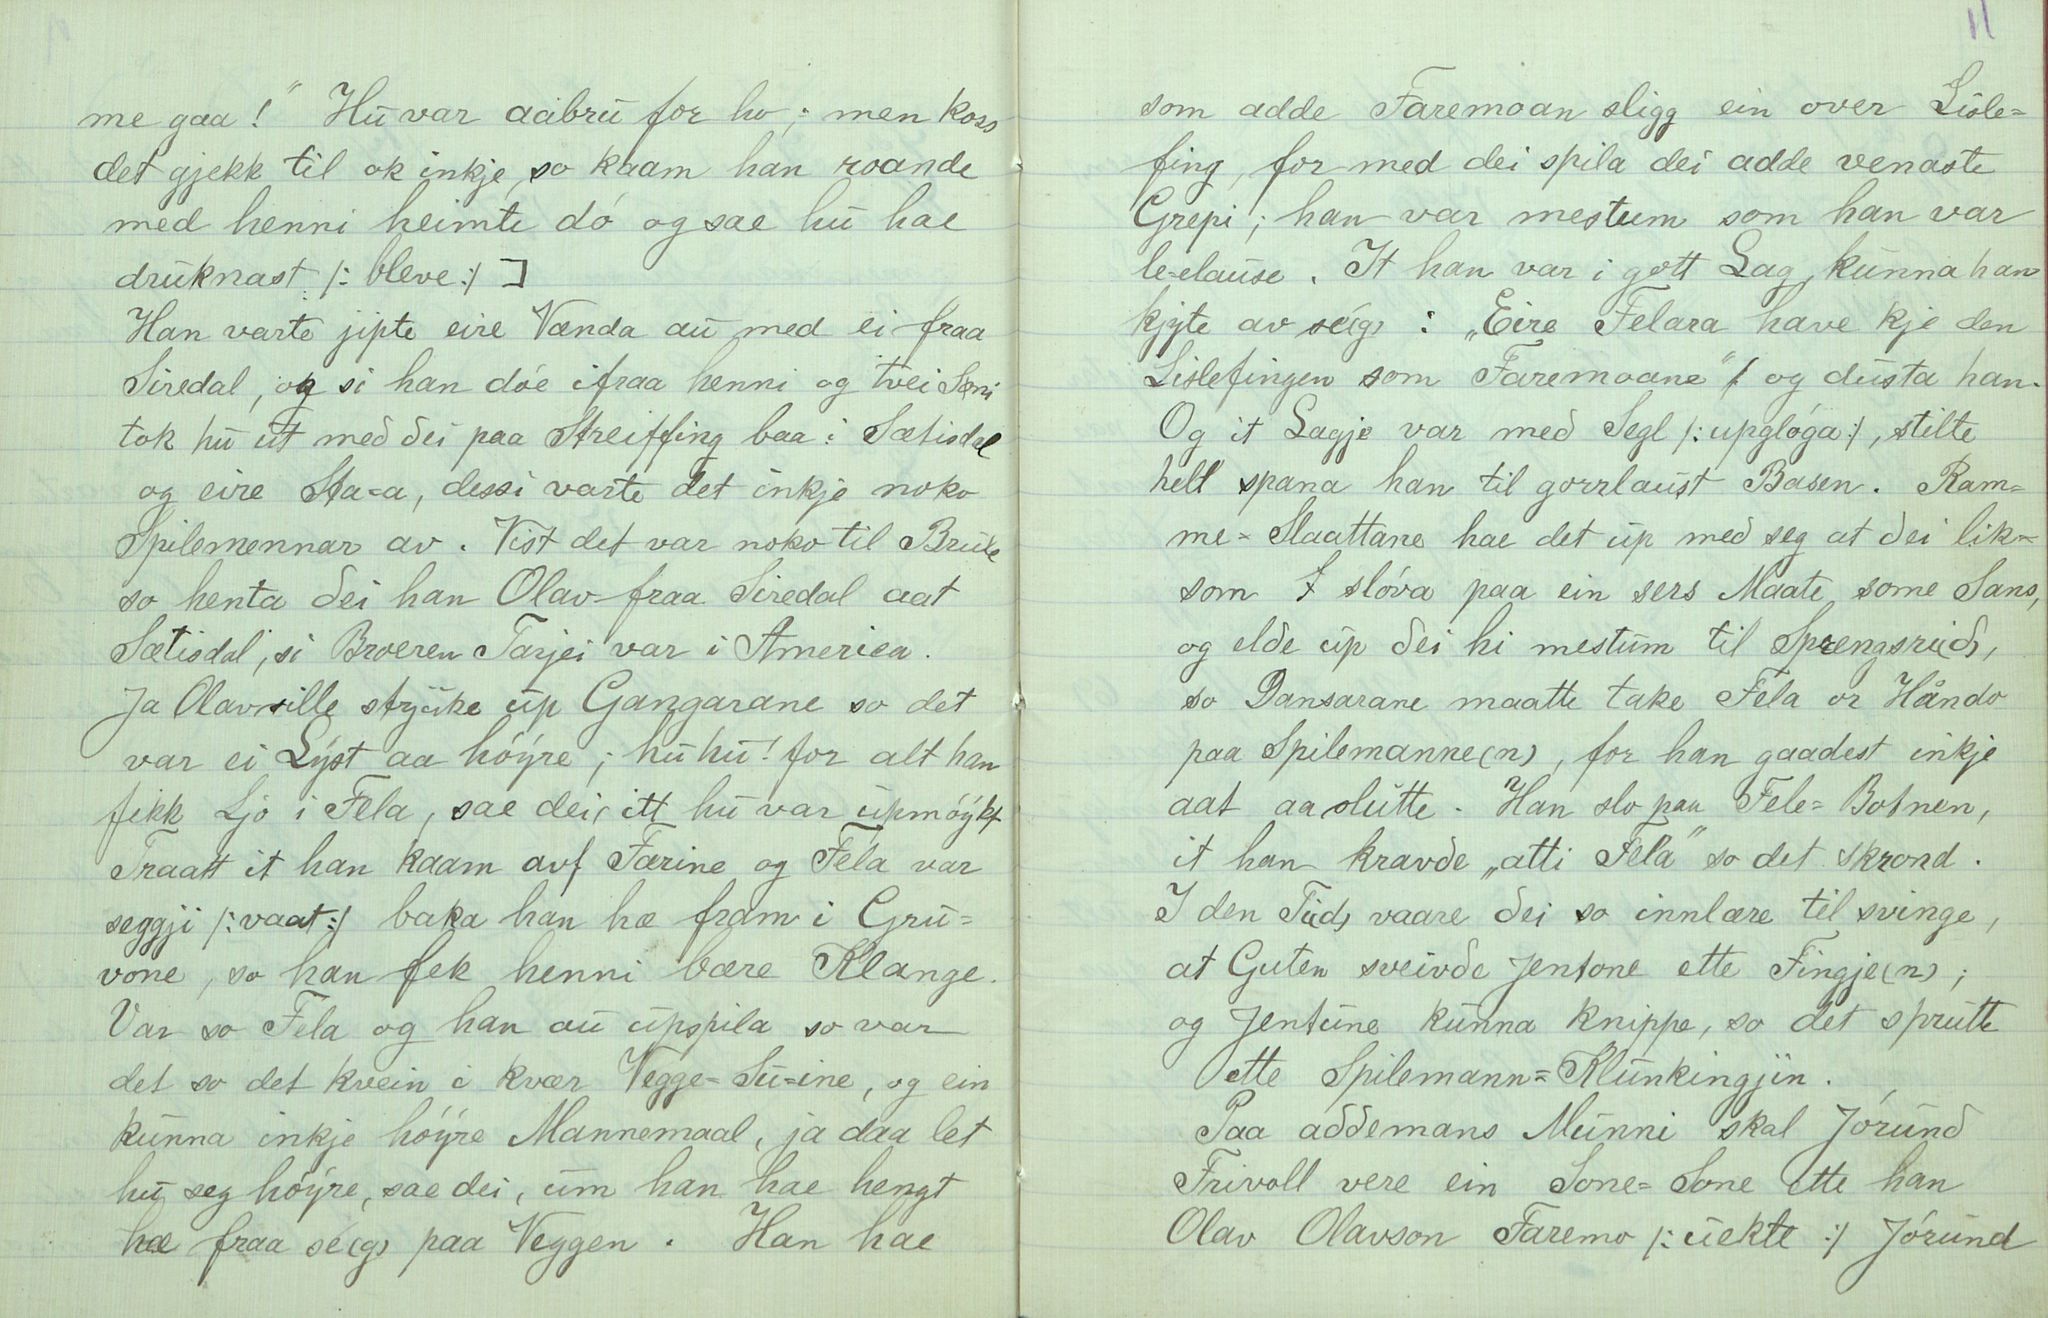 me gaa!" Hu var aabru for ho; men koss
det gjekk til ok inkje, so kaam han roande
med henni heimte dó og sae hu hae
druknast /: bleve :/ ]
Han varte jipte eire Vænda au med ei fraa
Siredal, og si han dóe ifraa henni og tvei Sæni
tok hu ut med dei paa Streiffing baa i Sætisdal
og eire Sta=a, dessi varte det inkje noko
Spilemennar av. Vist det var noko til Brude
so henta dei han Olav fraa Siredal aat
Sætisdal, si Broeren Tarjei var i America.
Ja Olav sille stryuke up Gangarane so det
var ei Lyst aa höyre; hu hu! for alt han
fekk Ljo i Fela, sae dei, itt hu var upmöykt
Traatt it han kaam avf Færine og Fela var
seggji /: vaat :/ baka han hæ fram i Gru=
vone, so han fek henni bære Klange.
Var so Fela og han au upspila so var
det so det kvein i kvær Vegge=Su=ine, og ein
kunna inkje höyre Mannemaal, ja daa let
hu seg höyre, sae dei, um han hae hengt
hæ fraa sé(g) paa Veggen. Han hae
11
som adde Faremoan sligg ein over Lisle=
fing, for med dei spila dei adde venaste
Grepi; han var mestum som han var
le=elause. It han var i gott Lag, kunna han
kjyte av sé(g) : „Eire Felara have kje den
Lislefingen som Faremoane" og dusta han.
Og it Lagje var med Segl /: upglóga :/, stilte
hell spana han til gorrlaust Basen. Ram=
me=Slaattane hae det up med seg at dei lik=
som slóva paa ein sers Maate some Sans,
og elde up dei hi mestum til Sprengsrei(d),
so Dansarane maatte take Fela or Håndo
paa Spilemanne(n), for han gaadest inkje
aat aa slutte. Han slo paa Fele=Botnen,
it han kravde „atti Fela" so det skrond.
I den Tid, vaare dei so innlære til svinge,
at Guten sveivde Jentone ette Fingje(n);
og Jentune kunna knippe, so det sprutte
ette Spilemann=Klunkingjin.
Paa addemans Munni skal Jórund
Frivoll vere ein Sone=Sone ette han
Olav Olavson Faremo /: uekte :/ Jórund